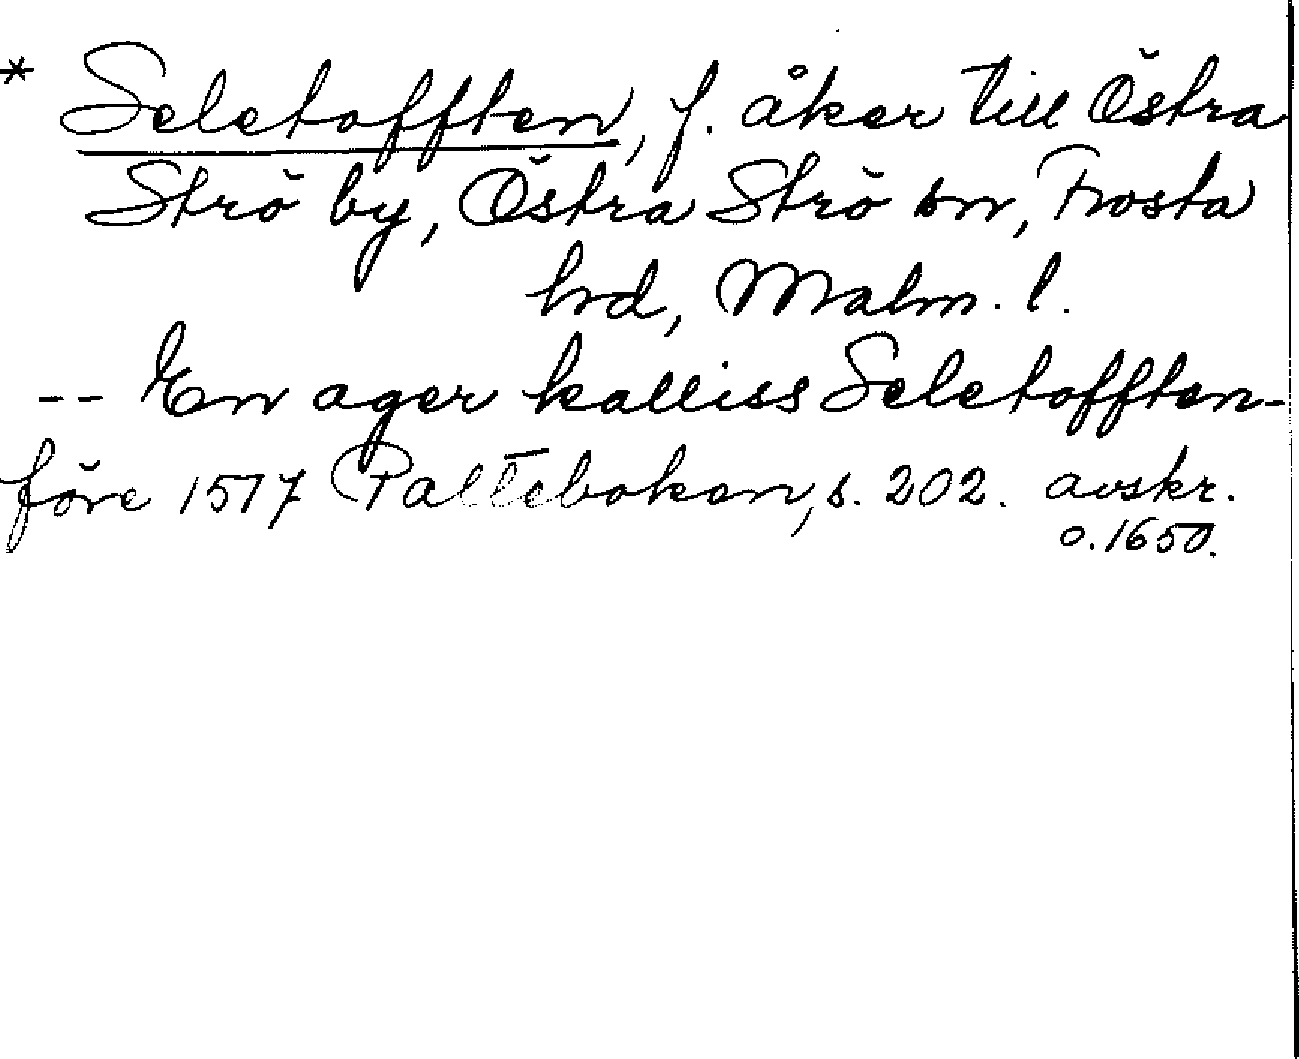 * Seletofften, f. åker till Östra
Strö by, Östra Strö sn, Frosta
hrd, Malm. l.
-- En ager kalliss Seletofften -
före 1517 Palteboken, s. 202. avskr.
o. 1650.